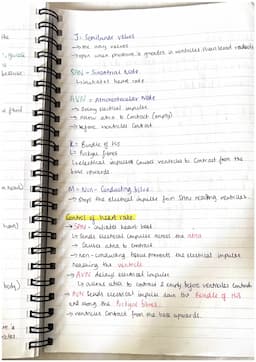 the
J = Semilunar valves
→ one way valves
→ open when pressure is greater in ventricles than blood
because
SAN - Sinoatrial Node
→ initiates heart rate
a fluid
AVN = Atrioventricular Node
→ Delay electrical impulse
→ allow atria to contract (empty)
→ before ventricles contract
K = Bundle of His
L = Purkyne fibres
↳ electrical impulse causes ventricles to contract from the
base upwards
M = Non-Conducting tissue
→ Stops the electrical impulse from SAN reaching ventricles
Control of heart rate
→ SAN - initiates heart beat
↳ Sends electrical impulse across the atria
→ Causes atria to contract
→ non-conducting tissue prevents the electrical impulse
reaching the ventricle
→ AVN delays electrical impulse
↳ allows atria to contract & empty before ventricles contract
body)
→ AVN Sends electrical impulse down the Bundle of His
and along the Purkyne fibres.
→ ventricles contract from the base upwards.